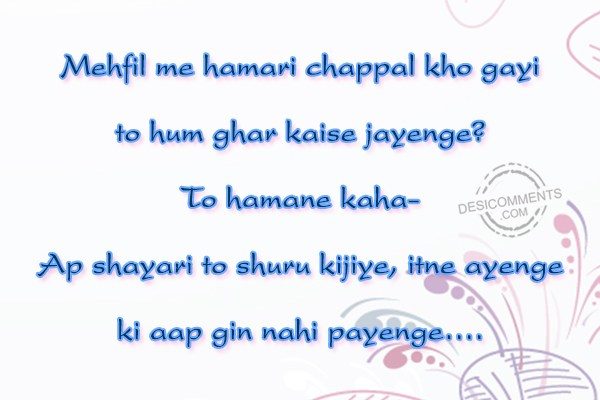 Mehfil me hamari chappal kho gayi
to hum ghar kaise jayenge?
To hamane kaha-
DESICOMMENTS
.COM
Ap shayari to shuru kijiye, itne ayenge
ki aap gin nahi payenge....